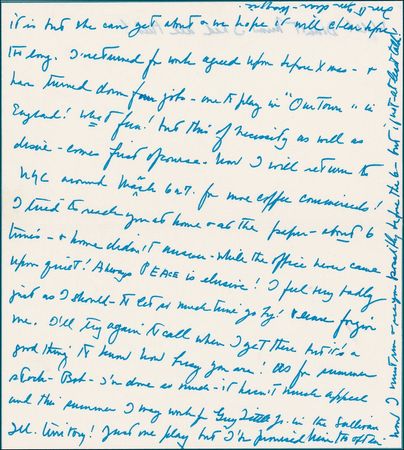 it is but she can get about & we hope it will clear before
too long. I returned for work agreed upon before Xmas - &
have turned down four jobs - one to play in "Our Town" in
England! What fun! but this of necessity as well as
desire - comes first of course. Now I will return to
NYC around March 6 or 7. for more coffee commercials!
I tried to reach you at home & at the paper - about 6
times - & home didn't answer - while the office never came
upon quiet! Always PEACE is elusive! I feel very badly
just as I should - to let so much time go by! Please forgive
me. I'll try again to call when I get there but it's a
good thing to know how busy you are! As for summer
stock - Bob - I've done so much - it hasn't much appeal
and this summer I may work for Guy Little Jr. in the Sullivan
Ill. territory! Just one play but I've promised him so often -
now I must run - see you possibly before the 6 - but if not at least talk!